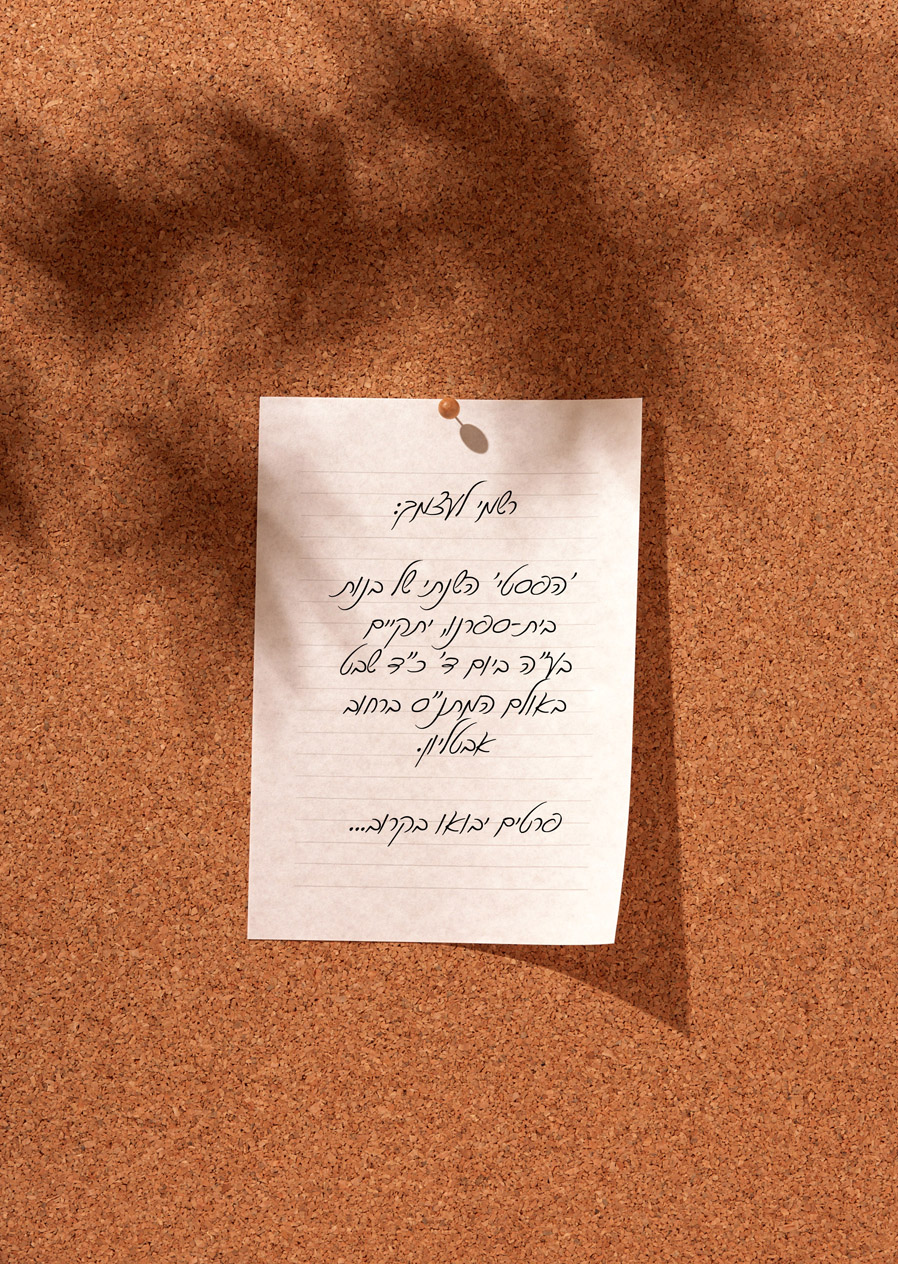 רשמי לעצמך:
'הפסטי' השנתי של בנות
בית-ספרנו, יתקיים
בע"ה ביום ד' כ"ד שבט
באולם המתנ"ס ברחוב
אבטליון.
פרטים יבואו בקרוב...